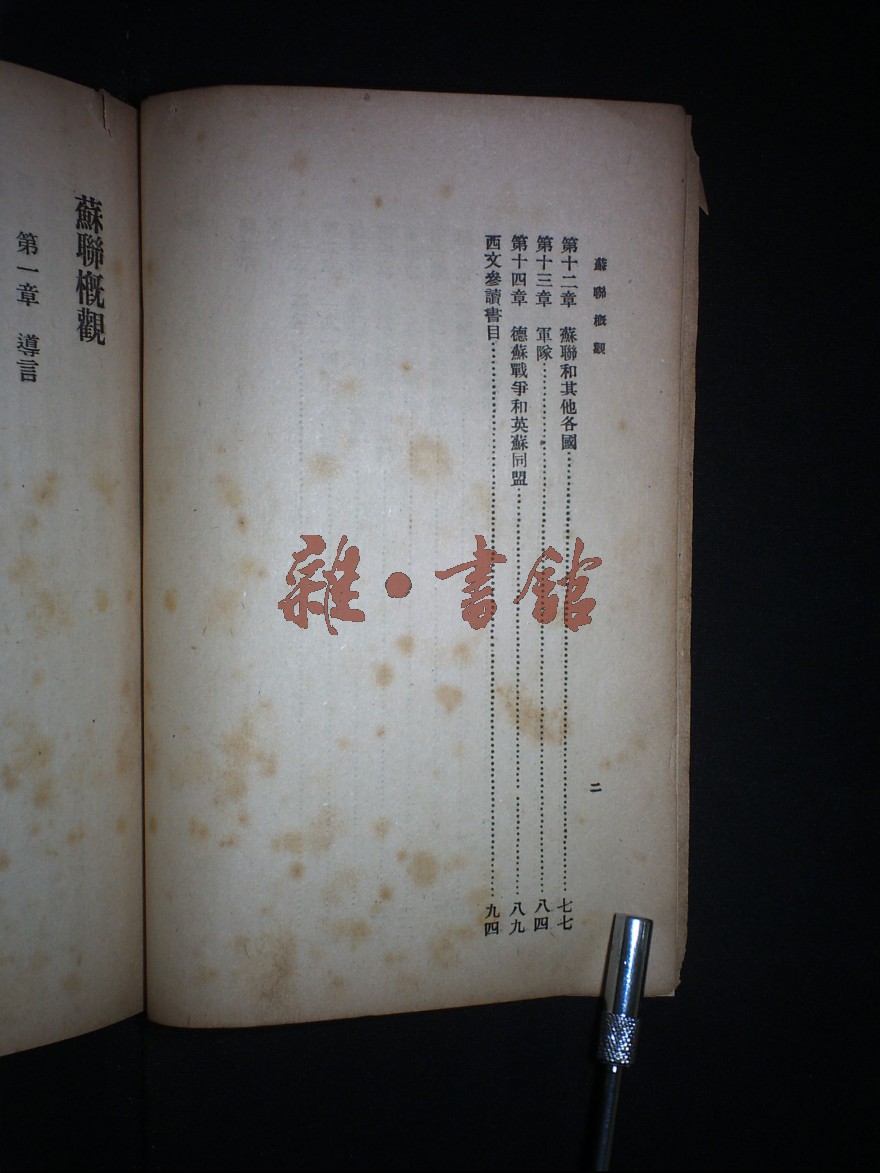 蘇聯概觀
二
第十二章 蘇聯和其他各國……七七
第十三章 軍隊……八四
第十四章 德蘇戰爭和英蘇同盟……八九
西文參讀書目……九四
蘇聯概觀
第一章 導言
雜·書館